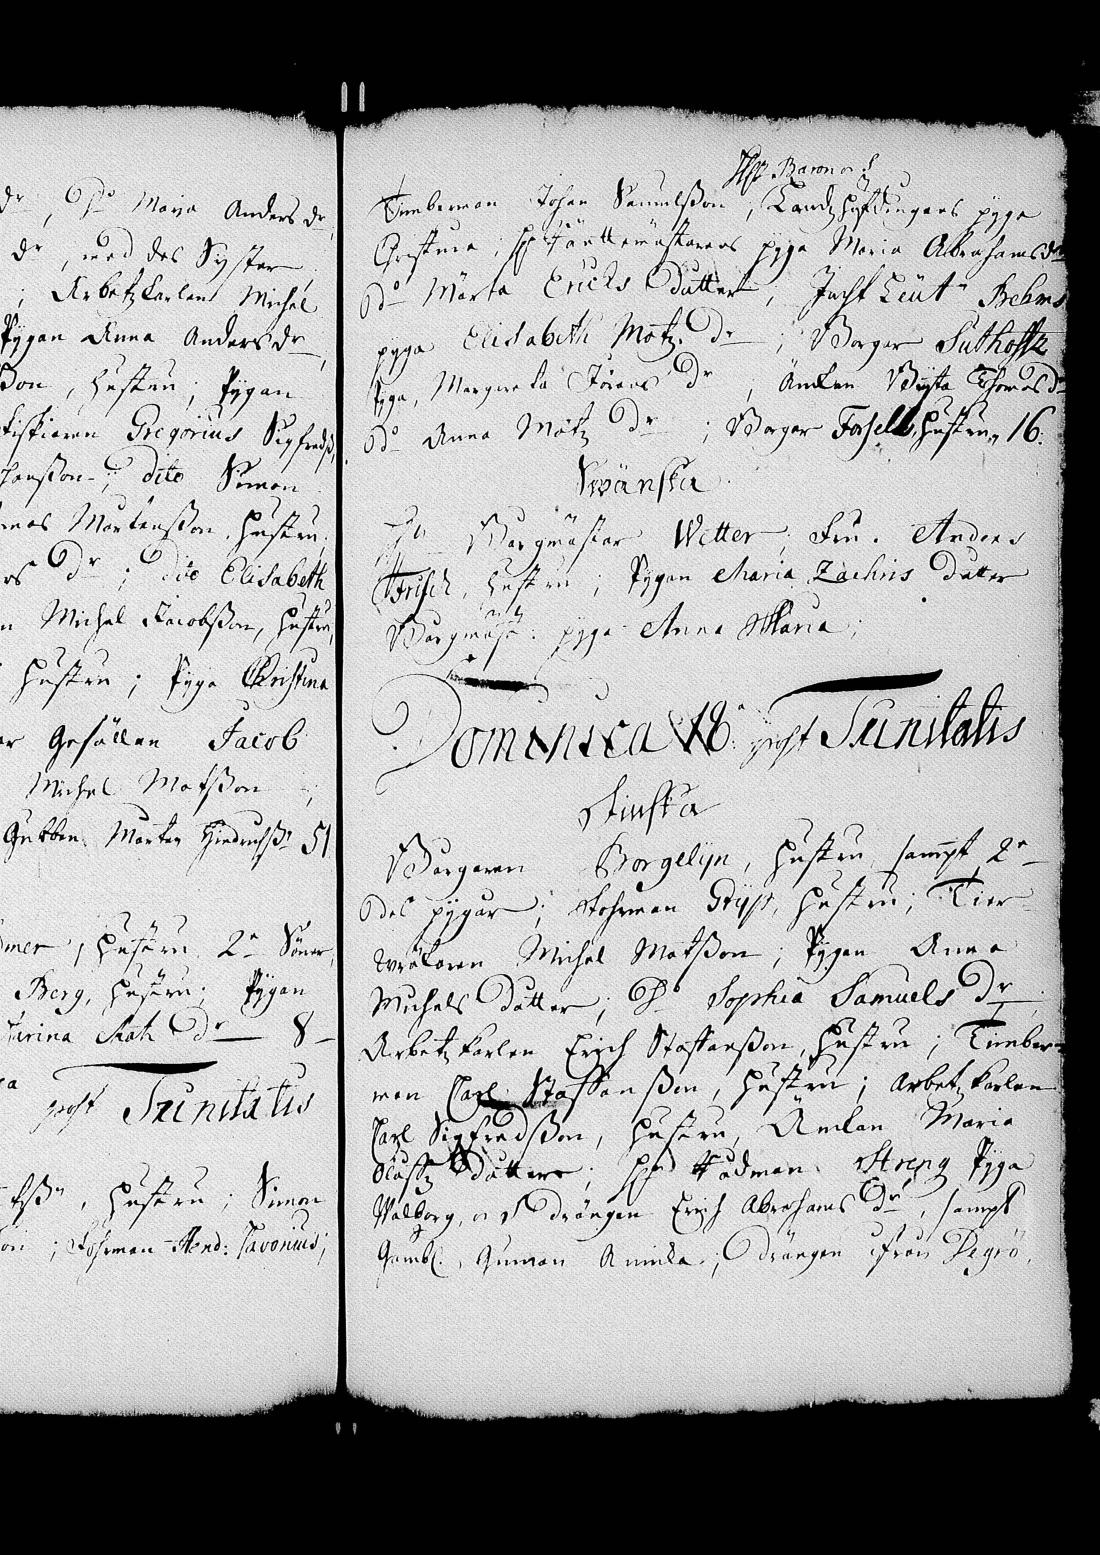 dr, Do Maria Anders dr,
dr, med des Syster,
; Arbetzkarlens Michel
Pygan Anna Anders dr,
ßon, hustru; Pygan
fiskiaren Gregorius Sigfredß.
hanßon; dito Simon
mas Mårtenßon, hustru;
rs dr; dito Elisabeth
n Michel Jacobßon, hustru,
hustru; Pyga Christina
er Gesällen Jacob
Michel Matßon;
Gubben Mårten Hindrichß 51
mer, hustru 2e Söner,
Berg, hustru; Pygan
Karina Math. dr 8
post Trinitatis
tßn, hustru; Simon
on; Fohrman Hend: Favonius;
Hr Baron o:
Timberman Johan Samuelßon; Landzhöfdingens pyga
Christina; Hr Räntemästarens pyga Maria Abrahamsdr
Do Märta Erichs dotter; Leut Brehms
pyga Elisabeth Matz. dr; Borgar Suthoffz
Pyga, Margareta Jörans dr; Änkan Thomasdr
Do Anna Matz dr; Borgar Forsell, hustru, 16.
Swänska
Hr Borgmästar Wetter; Fru. Anders
Frisch, hustru; Pygan Maria Zachris dotter
Borgmäst: pyga Anna Maria;
Dominica 18a post Trinitatis
Finska
Borgaren Borgelijn, hustru, sampt 2e
des pygor; Fohrman Grijp, hustru; Tier-
wräkaren Michel Matßon; Pygan Anna
Michels dotter; Do Sophia Samuels dr;
Arbetzkarlen Erich Staffanßon, hustru; Timber-
man Carl Staffanßon, hustru; Arbetzkarlen
Carl Sigfredßon, hustru, Änkan Maria
Olufz dotter; Hr Rådman Streng Pyga
Walborg, o drängen Erich Abrahams dr, sampt
Gambl. Gumman Annika; drängen från Degerö,